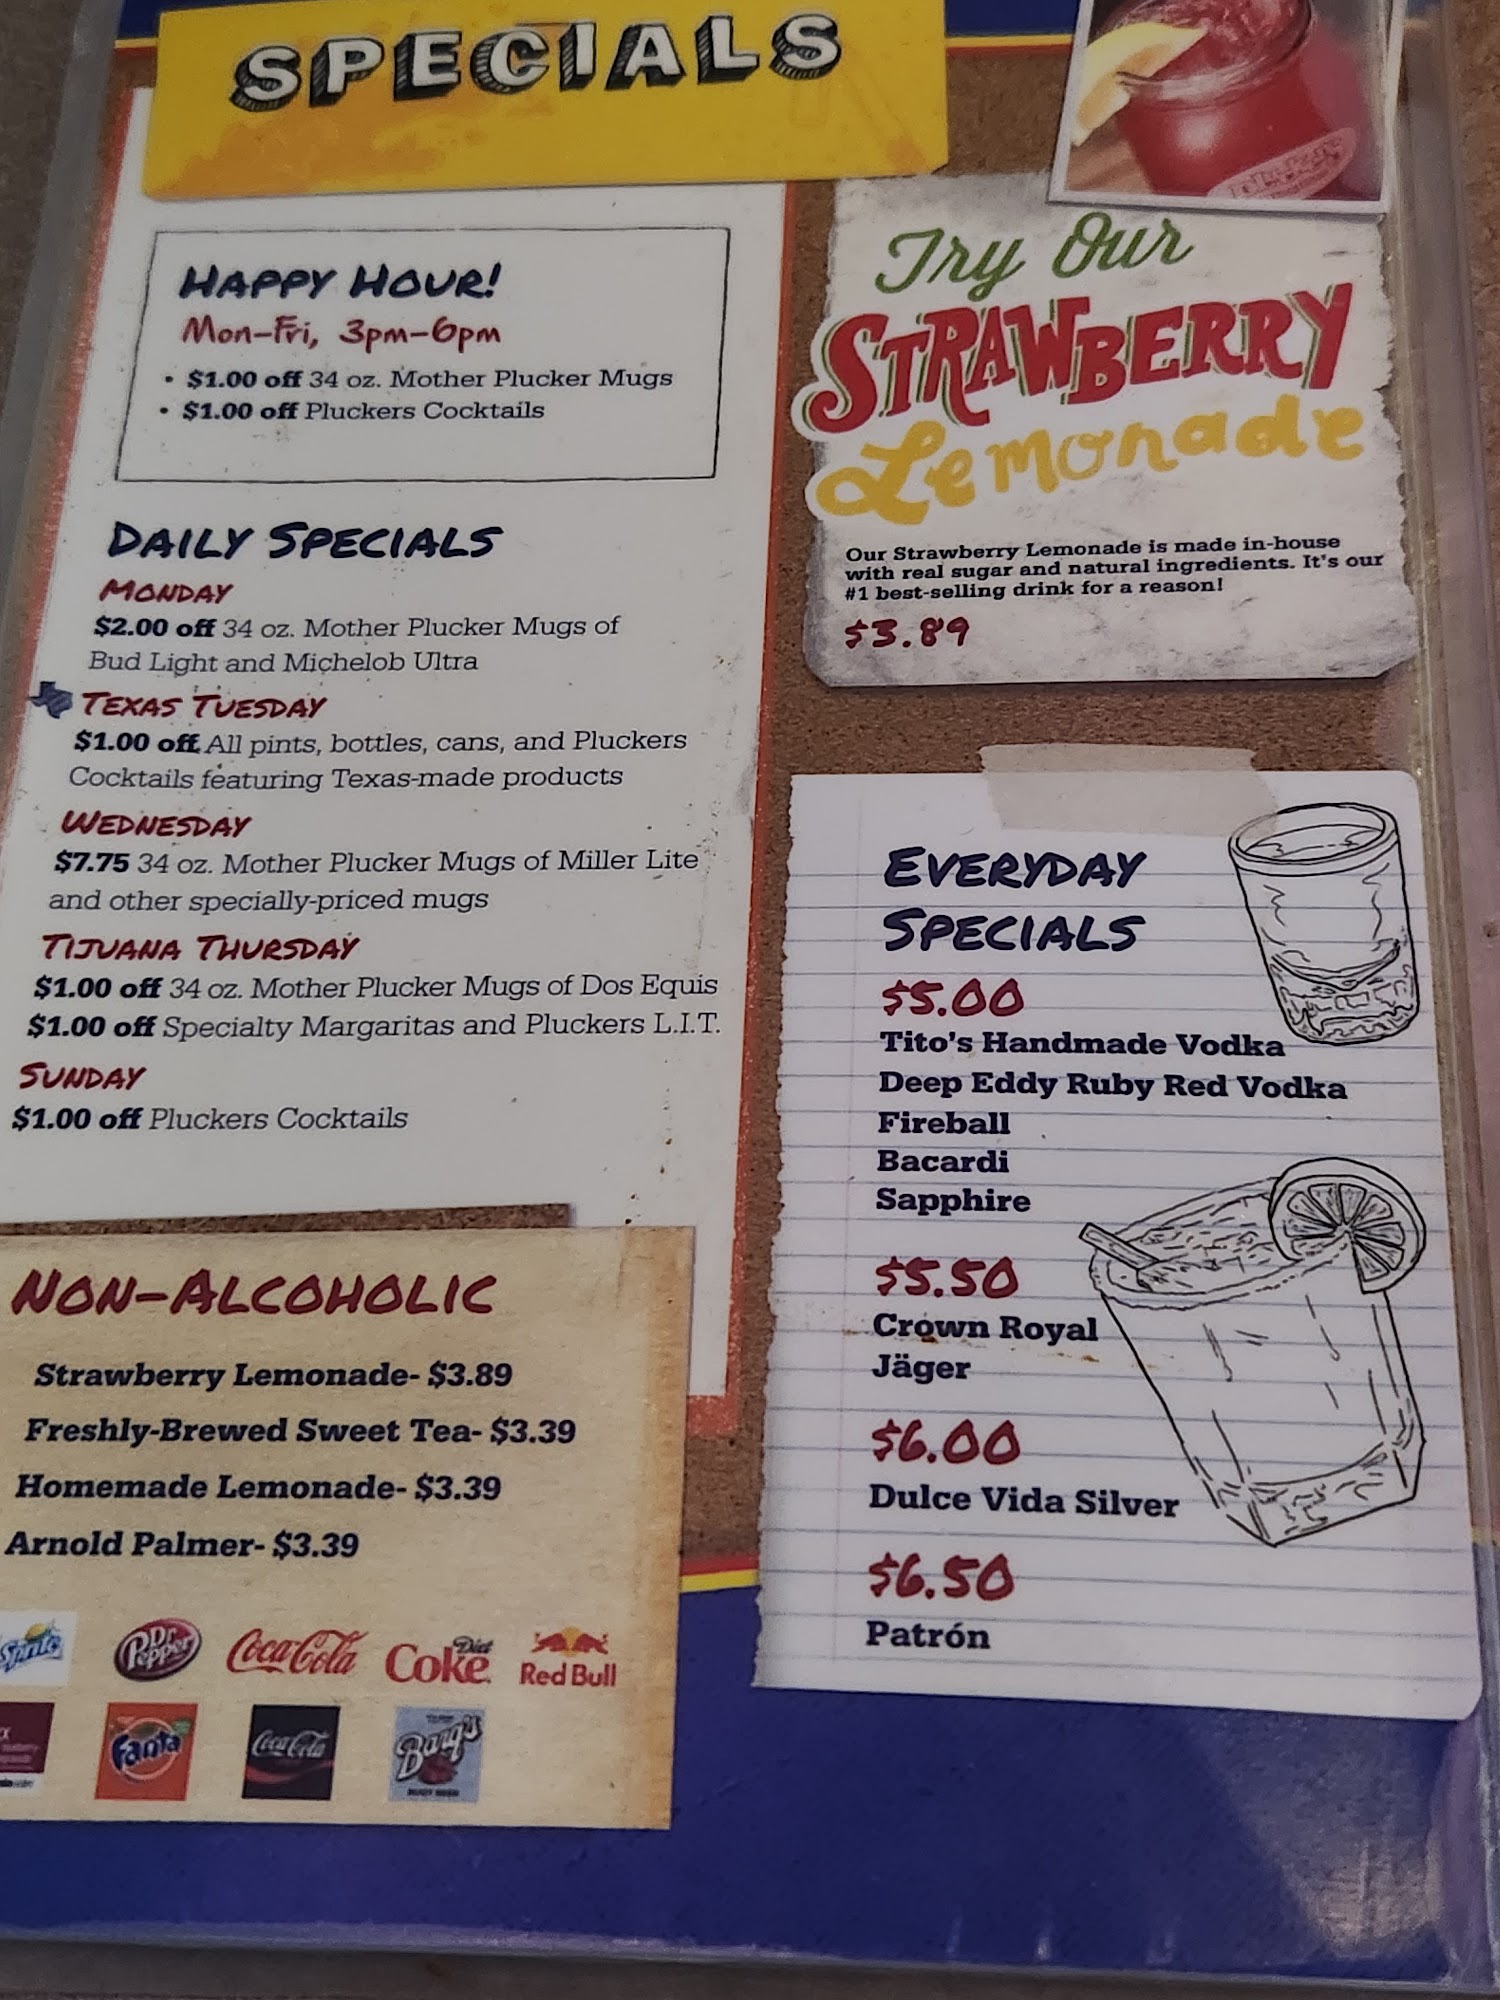 SPECIALS
HAPPY HOUR!
Mon-Fri, 3pm-6pm
• $1.00 off 34 oz. Mother Plucker Mugs
• $1.00 off Pluckers Cocktails
DAILY SPECIALS
MONDAY
$2.00 off 34 oz. Mother Plucker Mugs of
Bud Light and Michelob Ultra
TEXAS TUESDAY
$1.00 off All pints, bottles, cans, and Pluckers
Cocktails featuring Texas-made products
WEDNESDAY
$7.75 34 oz. Mother Plucker Mugs of Miller Lite
and other specially-priced mugs
TIJUANA THURSDAY
$1.00 off 34 oz. Mother Plucker Mugs of Dos Equis
$1.00 off Specialty Margaritas and Pluckers L.I.T.
SUNDAY
$1.00 off Pluckers Cocktails
NON-ALCOHOLIC
Strawberry Lemonade- $3.89
Freshly-Brewed Sweet Tea- $3.39
Homemade Lemonade- $3.39
Arnold Palmer- $3.39
Sprite
Dr Pepper
Coca-Cola
Diet Coke
Red Bull
Fanta
Coca-Cola
Barq's
Try Our
STRAWBERRY
Lemonade
Our Strawberry Lemonade is made in-house
with real sugar and natural ingredients. It's our
#1 best-selling drink for a reason!
$3.89
EVERYDAY
SPECIALS
$5.00
Tito's Handmade Vodka
Deep Eddy Ruby Red Vodka
Fireball
Bacardi
Sapphire
$5.50
Crown Royal
Jäger
$6.00
Dulce Vida Silver
$6.50
Patrón